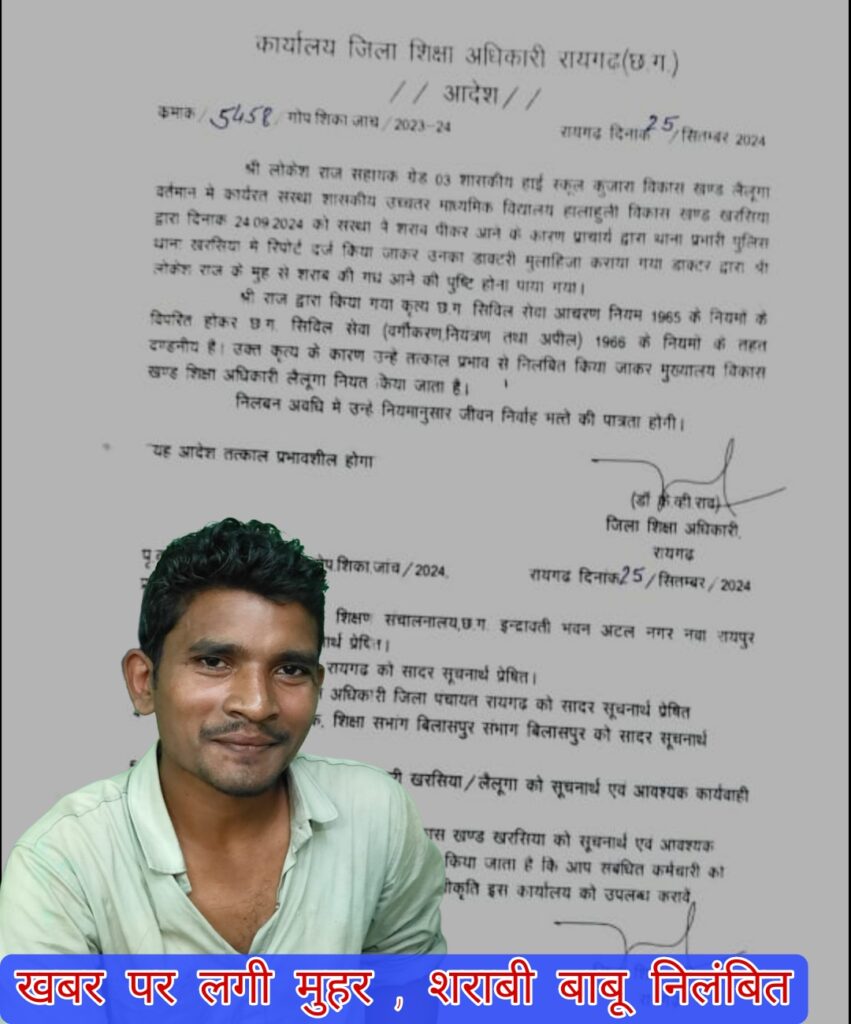 कार्यालय जिला शिक्षा अधिकारी रायगढ(छ.ग.)
// आदेश//
कमाक / 5458 / गोप शिका जाच / 2023-24
रायगढ दिनाक 25/सितम्बर 2024
श्री लोकेश राज सहायक ग्रेड 03 शासकीय हाई स्कूल कुजारा विकास खण्ड लैलूगा
वर्तमान मे कार्यरत सस्था शासकीय उच्चतर माध्यमिक विद्यालय हालाहुली विकास खण्ड खरसिया
द्वारा दिनाक 24.09.2024 को सस्था मे शराब पीकर आने के कारण प्राचार्य द्वारा थाना प्रभारी पुलिस
थाना खरसिया मे रिपोर्ट दर्ज किया जाकर उनका डाक्टरी मुलाहिजा कराया गया डाक्टर द्वारा श्री
लोकेश राज के मुह से शराब की गध आने की पुष्टि होना पाया गया।
श्री राज द्वारा किया गया कृत्य छ.ग सिविल सेवा आचरण नियम 1965 के नियमों के
विपरित होकर छ.ग. सिविल सेवा (वर्गीकरण,नियत्रण तथा अपील) 1966 के नियमों के तहत
दण्डनीय है। उक्त कृत्य के कारण उन्हे तत्काल प्रभाव से निलबित किया जाकर मुख्यालय विकास
खण्ड शिक्षा अधिकारी लैलूगा नियत किया जाता है।
निलबन अवधि मे उन्हे नियमानुसार जीवन निर्वाह भत्ते की पात्रता होगी।
यह आदेश तत्काल प्रभावशील होगा
(डॉ के.व्ही.राव)
जिला शिक्षा अधिकारी,
रायगढ
गोप.शिका.जांच/2024,
रायगढ दिनांक25/सितम्बर/2024
शिक्षण संचालनालय,छ.ग. इन्द्रावती भवन अटल नगर नवा रायपुर
प्रेषित।
रायगढ को सादर सूचनार्थ प्रेषित।
अधिकारी जिला पंचायत रायगढ को सादर सूचनार्थ प्रेषित
शिक्षा सभांग बिलासपुर संभाग बिलासपुर को सादर सूचनार्थ
खरसिया/लैलूगा को सूचनार्थ एवं आवश्यक कार्यवाही
खण्ड खरसिया को सूचनार्थ एव आवश्यक
किया जाता है कि आप सबधित कर्मचारी को
इस कार्यालय को उपलब्ध करावे
खबर पर लगी मुहर , शराबी बाबू निलंबित